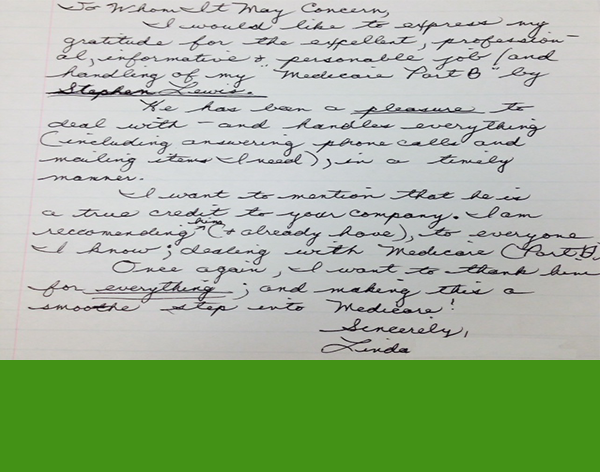 To Whom It May Concern,
I would like to express my
gratitude for the excellent, profession-
al, informative & personable job (and
handling of my "Medicare Part B" by
Stephen Lewis.
He has been a pleasure to
deal with - and handles everything
(including answering phone calls and
mailing items I need), in a timely
manner.
I want to mention that he is
a true credit to your company. I am
reccomending him (+ already have), to everyone
I know; dealing with Medicare (Part B)
Once again, I want to thank him
for everything; and making this a
smoothe step into Medicare!
Sincerely,
Linda